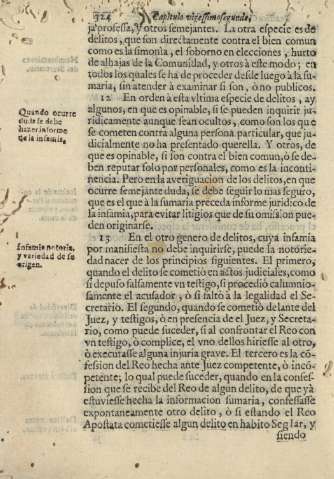 324 Capitulo vigessimosegundo,
ja professa, y otros semejantes. La otra especie es de
delitos, que son directamente contra el bien comun
como es la simonia, el soborno en elecciones, hurto
de alhajas de la Comunidad, y otros à este modo; en
todos los quales se ha de proceder desde luego à la su-
maria, sin atender à examinar si son, ò no publicos.
12 En orden à esta vltima especie de delitos, ay
algunos, en que es opinable, si se pueden inquirir ju-
ridicamente aunque sean ocultos, como son los que
se cometen contra alguna persona particular, que ju-
dicialmente no ha presentado querella. Y otros, de
que es opinable, si son contra el bien comun, ò se de-
ben reputar solo por personales, como es la inconti-
nencia. Pero en la averiguacion de los delitos, en que
ocurre semejante duda, se debe seguir lo mas seguro,
que es el que à la sumaria preceda informe juridico de
la infamia, para evitar litigios que de su omision pue-
den originarse.
Quando ocurre
duda se debe
hazer informe
de la infamia.
13 En el otro genero de delitos, cuya infamia
por manifiesta no debe inquirirse, puede la notorie-
dad nacer de los principios siguientes. El primero,
quando el delito se cometiò en actos judiciales, como
si depuso falsamente vn testigo, si procediò calumnio-
samente el acusador, ò si faltò à la legalidad el Se-
cretario. El segundo, quando se cometiò delante del
Juez, y testigos, ò en presencia de el Juez, y Secreta-
rio, como puede suceder, si al confrontar el Reo con
vn testigo, ò complice, el vno dellos hiriesse al otro,
ò executasse alguna injuria grave. El tercero es la cõ-
fession del Reo hecha ante Juez competente, ò incõ-
petente; lo qual puede suceder, quando en la confes-
sion que se recibe del Reo de algun delito, de que yà
estuviesse hecha la informacion sumaria, confessasse
expontaneamente otro delito, ò si estando el Reo
Apostata cometiesse algun delito en habito Seglar, y
siendo
Infamia notoria,
y variedad de su
origen.